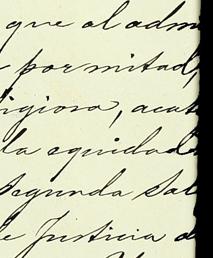 que al adm
por mitad,
ligiosa, acat
la equidad
segunda Sal
de Justicia d